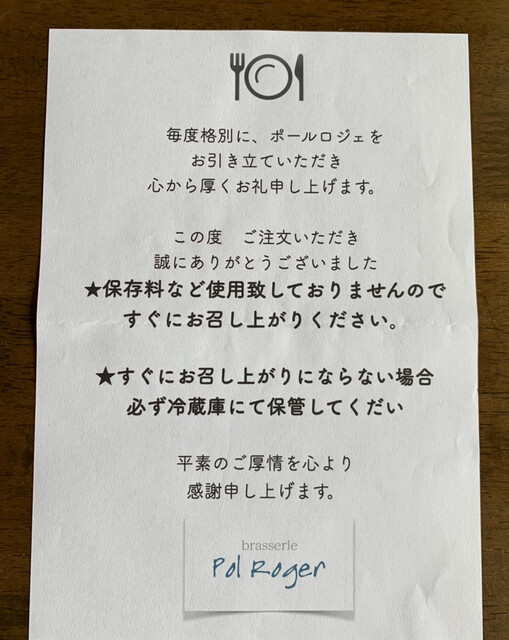 毎度格別に、ポールロジェを
お引き立ていただき
心から厚くお礼申し上げます。
この度　ご注文いただき
誠にありがとうございました
★保存料など使用致しておりませんので
すぐにお召し上がりください。
★すぐにお召し上がりにならない場合
必ず冷蔵庫にて保管してくだい
平素のご厚情を心より
感謝申し上げます。
brasserie
Pol Roger